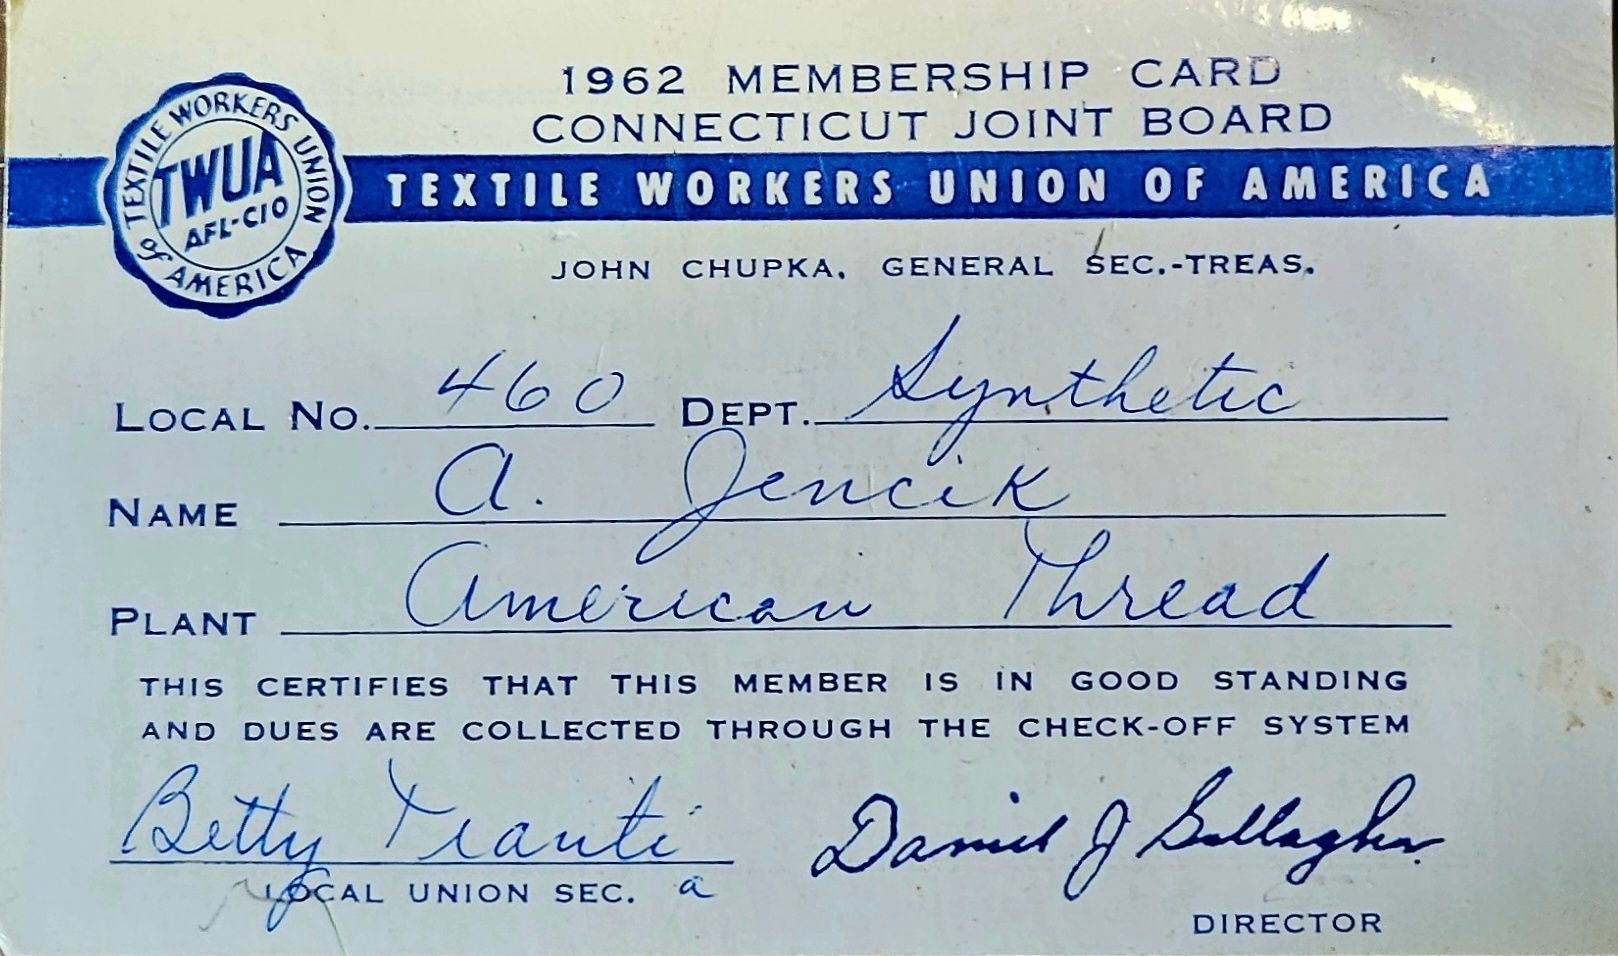 1962 MEMBERSHIP CARD
CONNECTICUT JOINT BOARD
TEXTILE WORKERS UNION OF AMERICA
TWUA
AFL-CIO
TEXTILE WORKERS UNION OF AMERICA
JOHN CHUPKA, GENERAL SEC.-TREAS.
LOCAL NO. 460 DEPT. Synthetic
NAME A. Jencik
PLANT American Thread
THIS CERTIFIES THAT THIS MEMBER IS IN GOOD STANDING
AND DUES ARE COLLECTED THROUGH THE CHECK-OFF SYSTEM
Betty Daniel J Gallagher
LOCAL UNION SEC. a
DIRECTOR